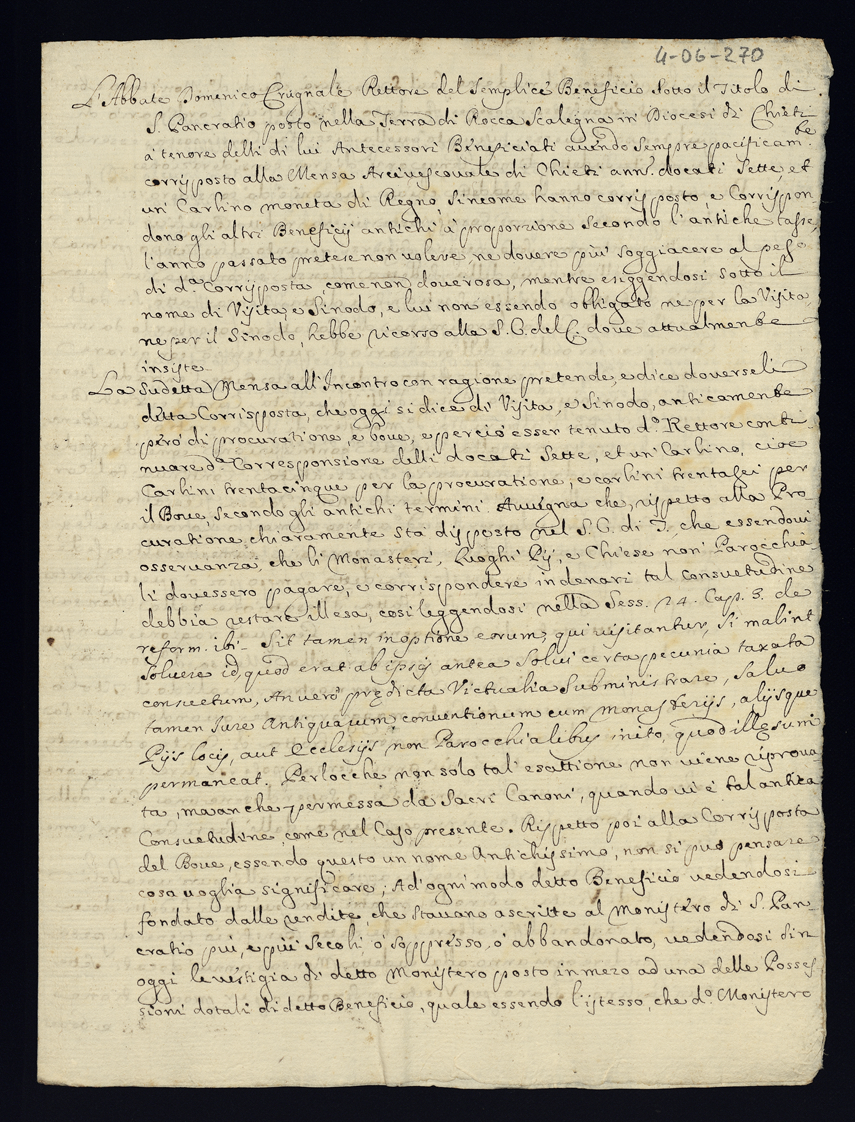 4-06-270
L'Abbate Domenico Crugnale Rettore del Semplice Beneficio Sotto il Titolo di
S. Pancratio posto nella Terra di Rocca Scalegna in Diocesi di Chieti
a tenore delli di lui Antecessori Beneficiati avendo sempre pacificam.te
corrisposto alla Mensa Arcivescovale di Chieti ann.i docati Sette, et
un' Carlino moneta di Regno, sincome hanno corrisposto, e Corrispon-
dono gli altri Beneficij antichi à proporzione secondo l'antiche tasse,
l'anno passato pretese non voleve, ne dovere più soggiacere al peso
di d.a Corrisposta, come non doverosa, mentre esiggendosi sotto il
nome di Visita, e Sinodo, e lui non essendo obbligato ne per la Visita,
ne per il Sinodo, hebbe ricorso alla S. C. del C. dove attualmente
insiste
La Sudetta Mensa all'Incontro con ragione pretende, e dice doverseli
detta Corrisposta, che oggi si dice di Visita, e Sinodo, anticamente
però di procuratione, e bove, e perciò esser tenuto d.o Rettore conti
nuare d.a Corresponsione delli docati Sette, et un' Carlino, cioè
Carlini trentacinque per la procuratione, e carlini trentasei per
il Bove, secondo gli antichi termini Avvegna che, rispetto alla Pro-
curatione, chiaramente sta disposto nel S. C. di T., che essendovi
osservanza, che li Monasteri, Luoghi Pij, e Chiese non' Parocchia-
li dovessero pagare, e corrispondere in denari tal consuetudine
debbia restare illesa, cosi leggendosi nella Sess. 24. Cap. 3. de
reform. ibi- Sit tamen in optione eorum, qui visitantur, si malint
solvere id, quod erat ab ipsis antea solvi certa pecunia taxata
consuetum, An vero prędicta Victualia Subministrare, Salvo
tamen Iure Antiquarum, conventionum cum Monasterijs, alijsque
Pijs locis, aut Ecclesijs non Parocchialibus inito, quod illęsum
permaneat. Perlocche non solo tal' esattione non viene riprova-
ta, ma anche permessa da Sacri Canoni, quando vi è tal antica
Consuetudine, come nel Caso presente. Rispetto poi alla Corrisposta
del Bove, essendo questo un nome Antichissimo, non si può pensare
cosa voglia significare; Ad' ogni modo detto Beneficio vedendosi
fondato dalle rendite, che stavano ascritte al Monistero di S. Pan-
cratio più, e più Secoli ò soppresso, ò abbandonato, vedendosi sin
oggi le vestigia di detto Monistero posto in mezo ad una delle Posses
sioni dotali di detto Beneficio, quale essendo l'istesso, che d.o Monistero